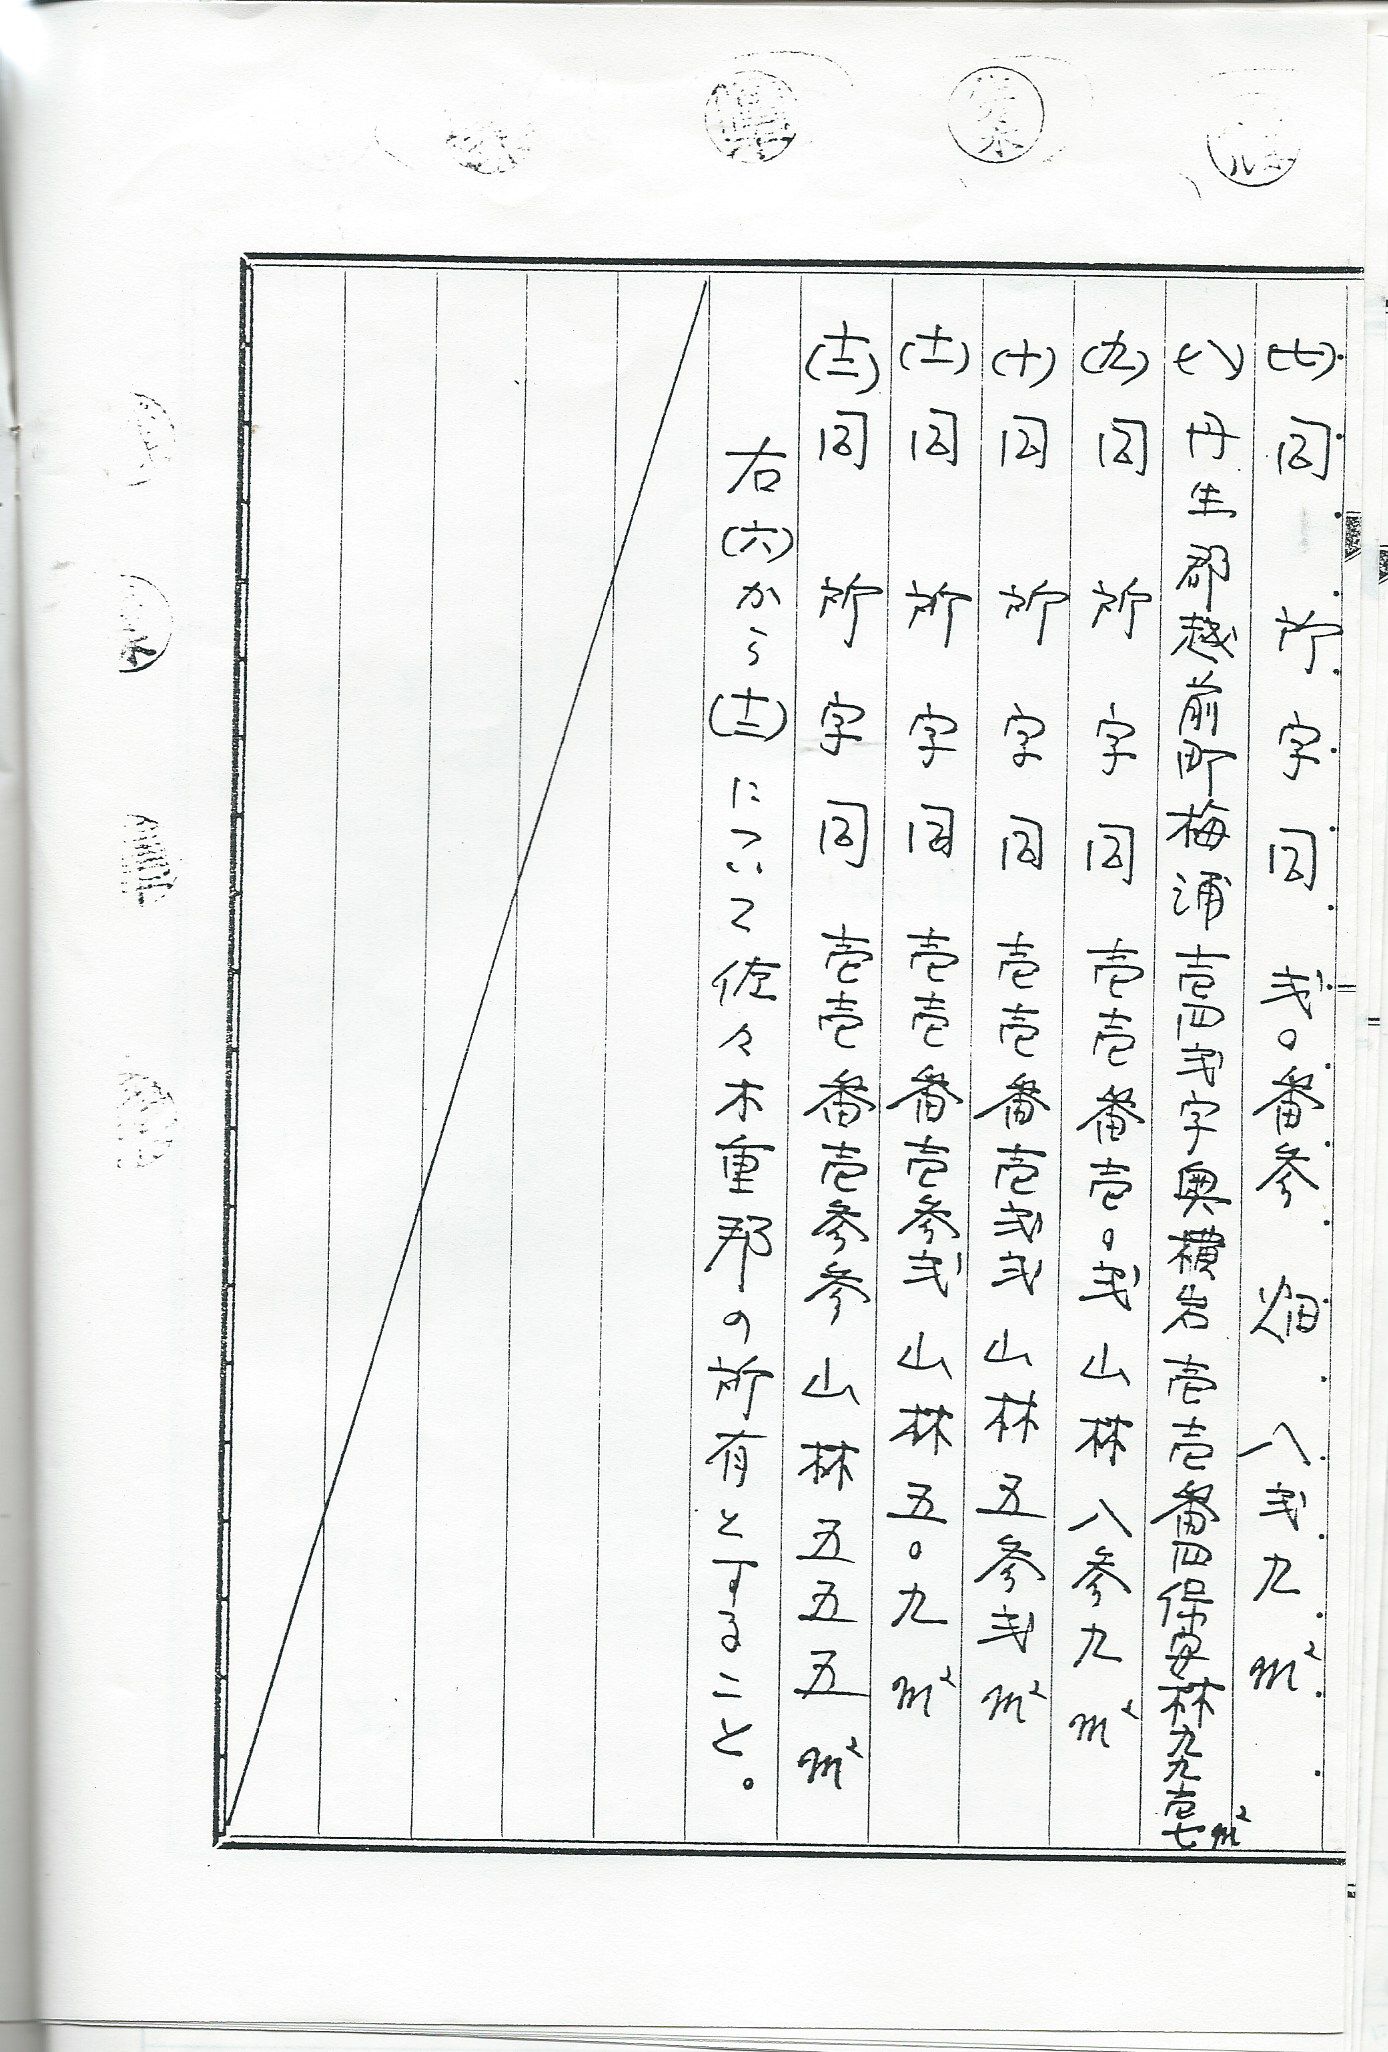 (七)同所字同弐〇番参畑八弐九m²
(八)丹生郡越前町梅浦壱四弐字奥横岩壱壱番四保安林九九壱七m²
(九)同所字同壱壱番壱〇弐山林八参九m²
(十)同所字同壱壱番壱弐弐山林五参弐m²
(十一)同所字同壱壱番壱参弐山林五〇九m²
(十二)同所字同壱壱番壱参参山林五五五m²
右(六)から(十二)について佐々木重郎の所有とすること。